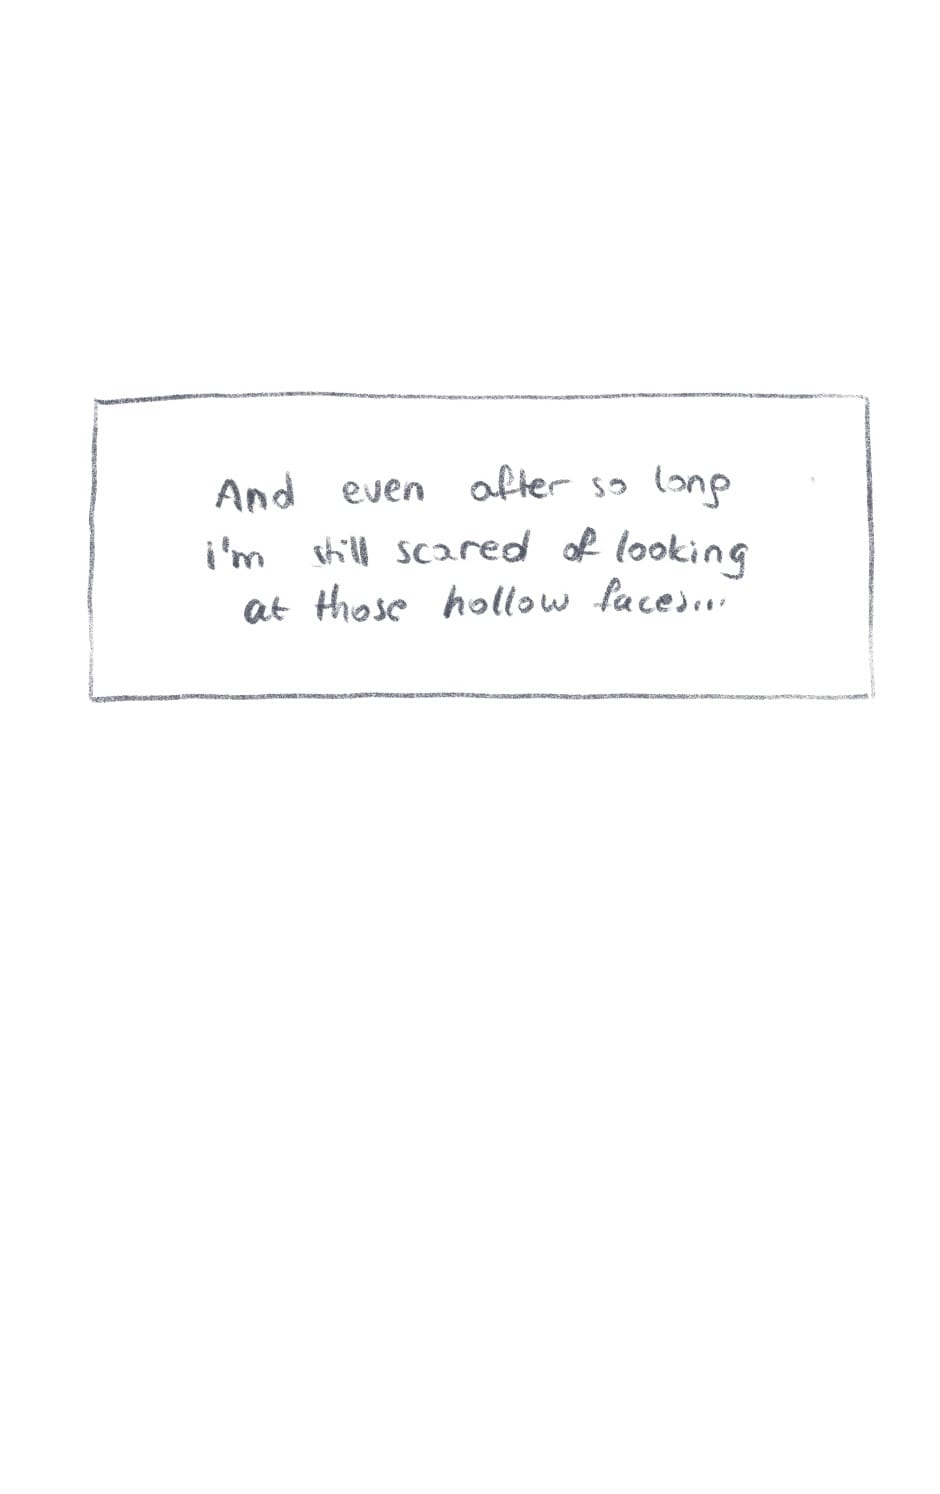 And even after so long
i'm still scared of looking
at those hollow faces...